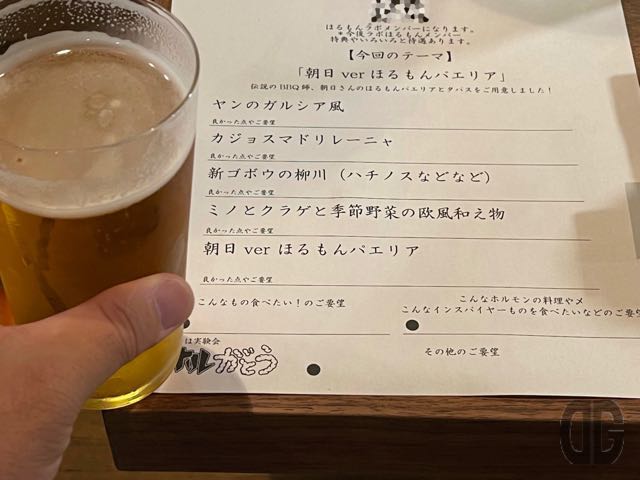 ほるもんラボメンバーになります。
*今後ラボほるもんメンバー
特典やいろいろと待遇あります。
【今回のテーマ】
「朝日 ver ほるもんパエリア」
伝説の BBQ 師、朝日さんのほるもんパエリアとタパスをご用意しました!
ヤンのガルシア風
良かった点やご要望
カジョスマドリレーニャ
良かった点やご要望
新ゴボウの柳川(ハチノスなどなど)
良かった点やご要望
ミノとクラゲと季節野菜の欧風和え物
良かった点やご要望
朝日 ver ほるもんパエリア
良かった点やご要望
こんなもの食べたい!のご要望
こんなホルモンの料理やメ
こんなインスパイヤーものを食べたいなどのご要
は実験会
その他のご要望
DG